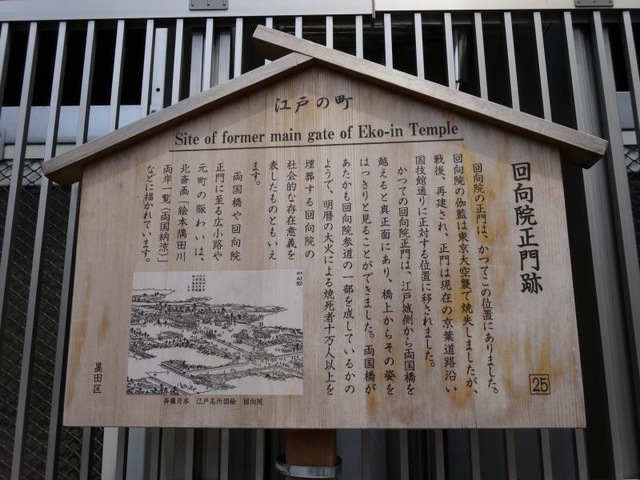 江戸の町
Site of former main gate of Eko-in Temple
回向院正門跡
回向院の正門は、かつてこの位置にありました。
回向院の伽藍は東京大空襲で焼失しましたが、
戦後、再建され、正門は現在の京葉道路沿い
国技館通りに正対する位置に移されました。
かつての回向院正門は、江戸城側から両国橋を
越えると真正面にあり、橋上からその姿を
はっきりと見ることができました。両国橋が
あたかも回向院参道の一部を成しているかの
ようで、明暦の大火による焼死者十万人以上を
埋葬する回向院の
社会的な存在意義を
表したものともいえ
ます。
両国橋や回向院
正門に至る広小路や
元町の賑わいは、
北斎画「絵本隅田川
両岸一覧(両国納涼)」
などに描かれています。
斉藤月岑 江戸名所図絵 回向院
墨田区
25